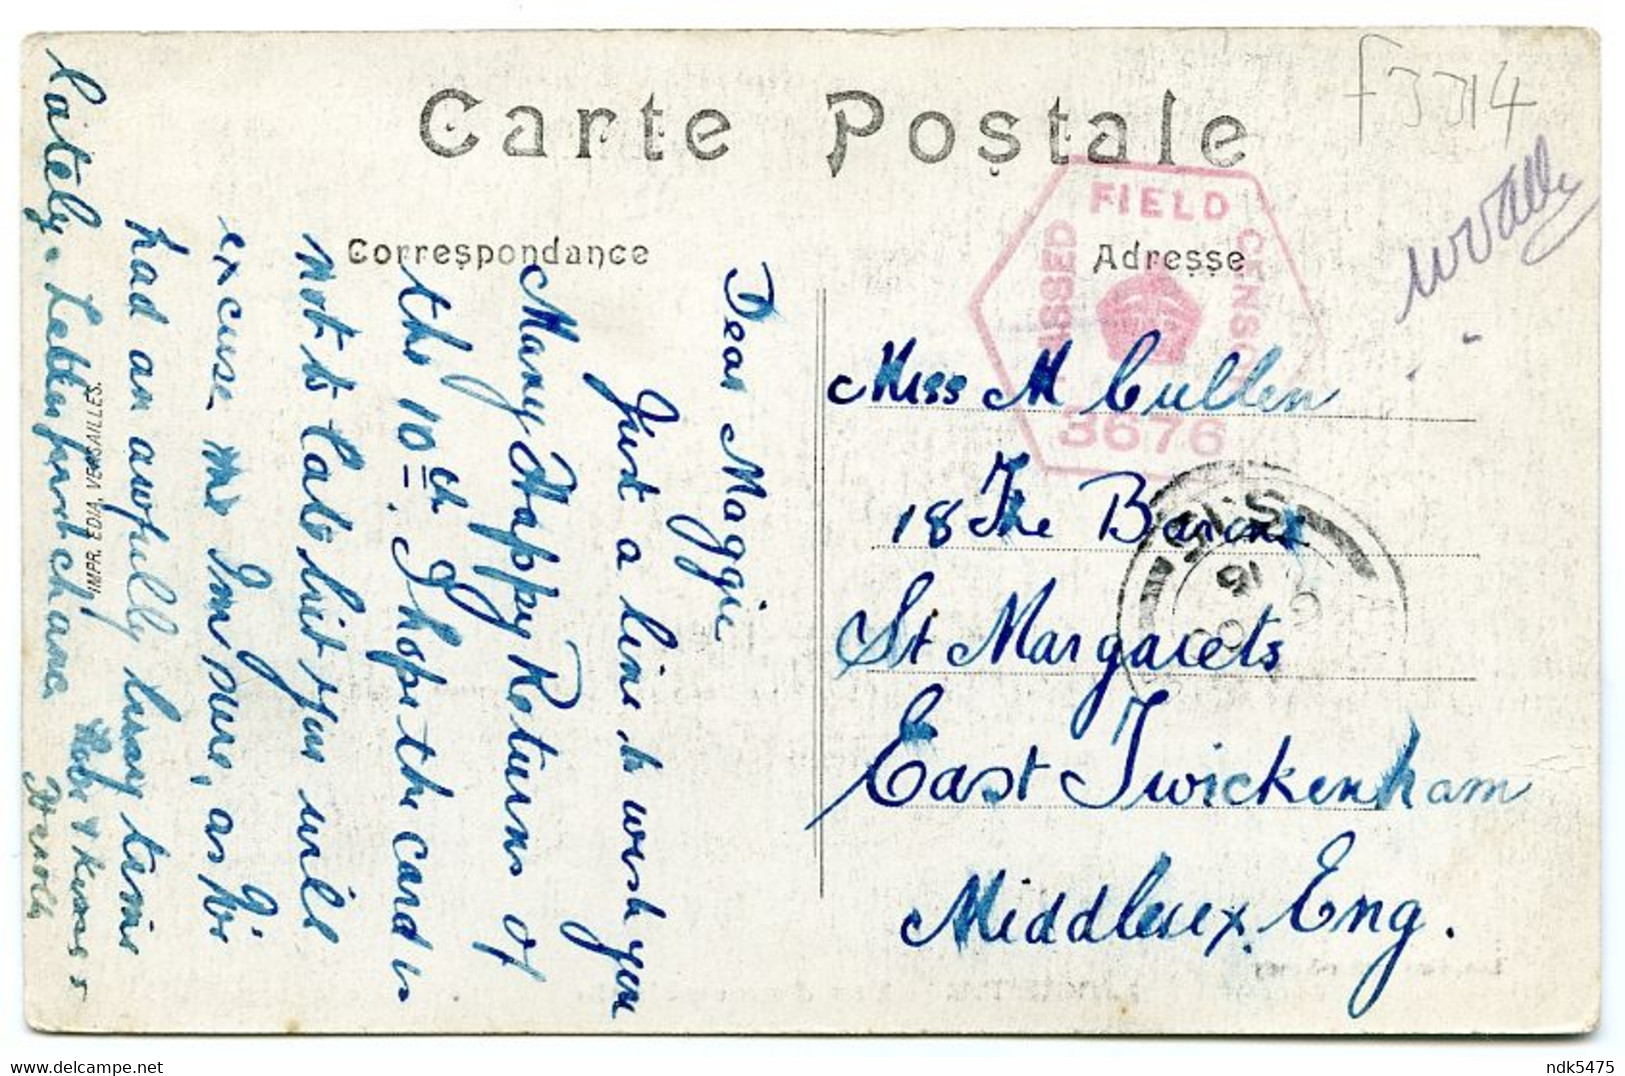 Carte Postale
Correspondance
Adresse
F3314
PASSED FIELD CENSOR
3676
Dear Maggie
Just a line to wish you
Many Happy Returns of
the 10th. I hope the card is
not to late but you will
excuse me I'm sure, as I've
had an awfully busy time
lately. Letter first chance
Love & kisses
Miss M Cullen
18 The Barons
St Margarets
East Twickenham
Middlesex, Eng.
IMPR. EDIA, VERSAILLES.
ndk5475